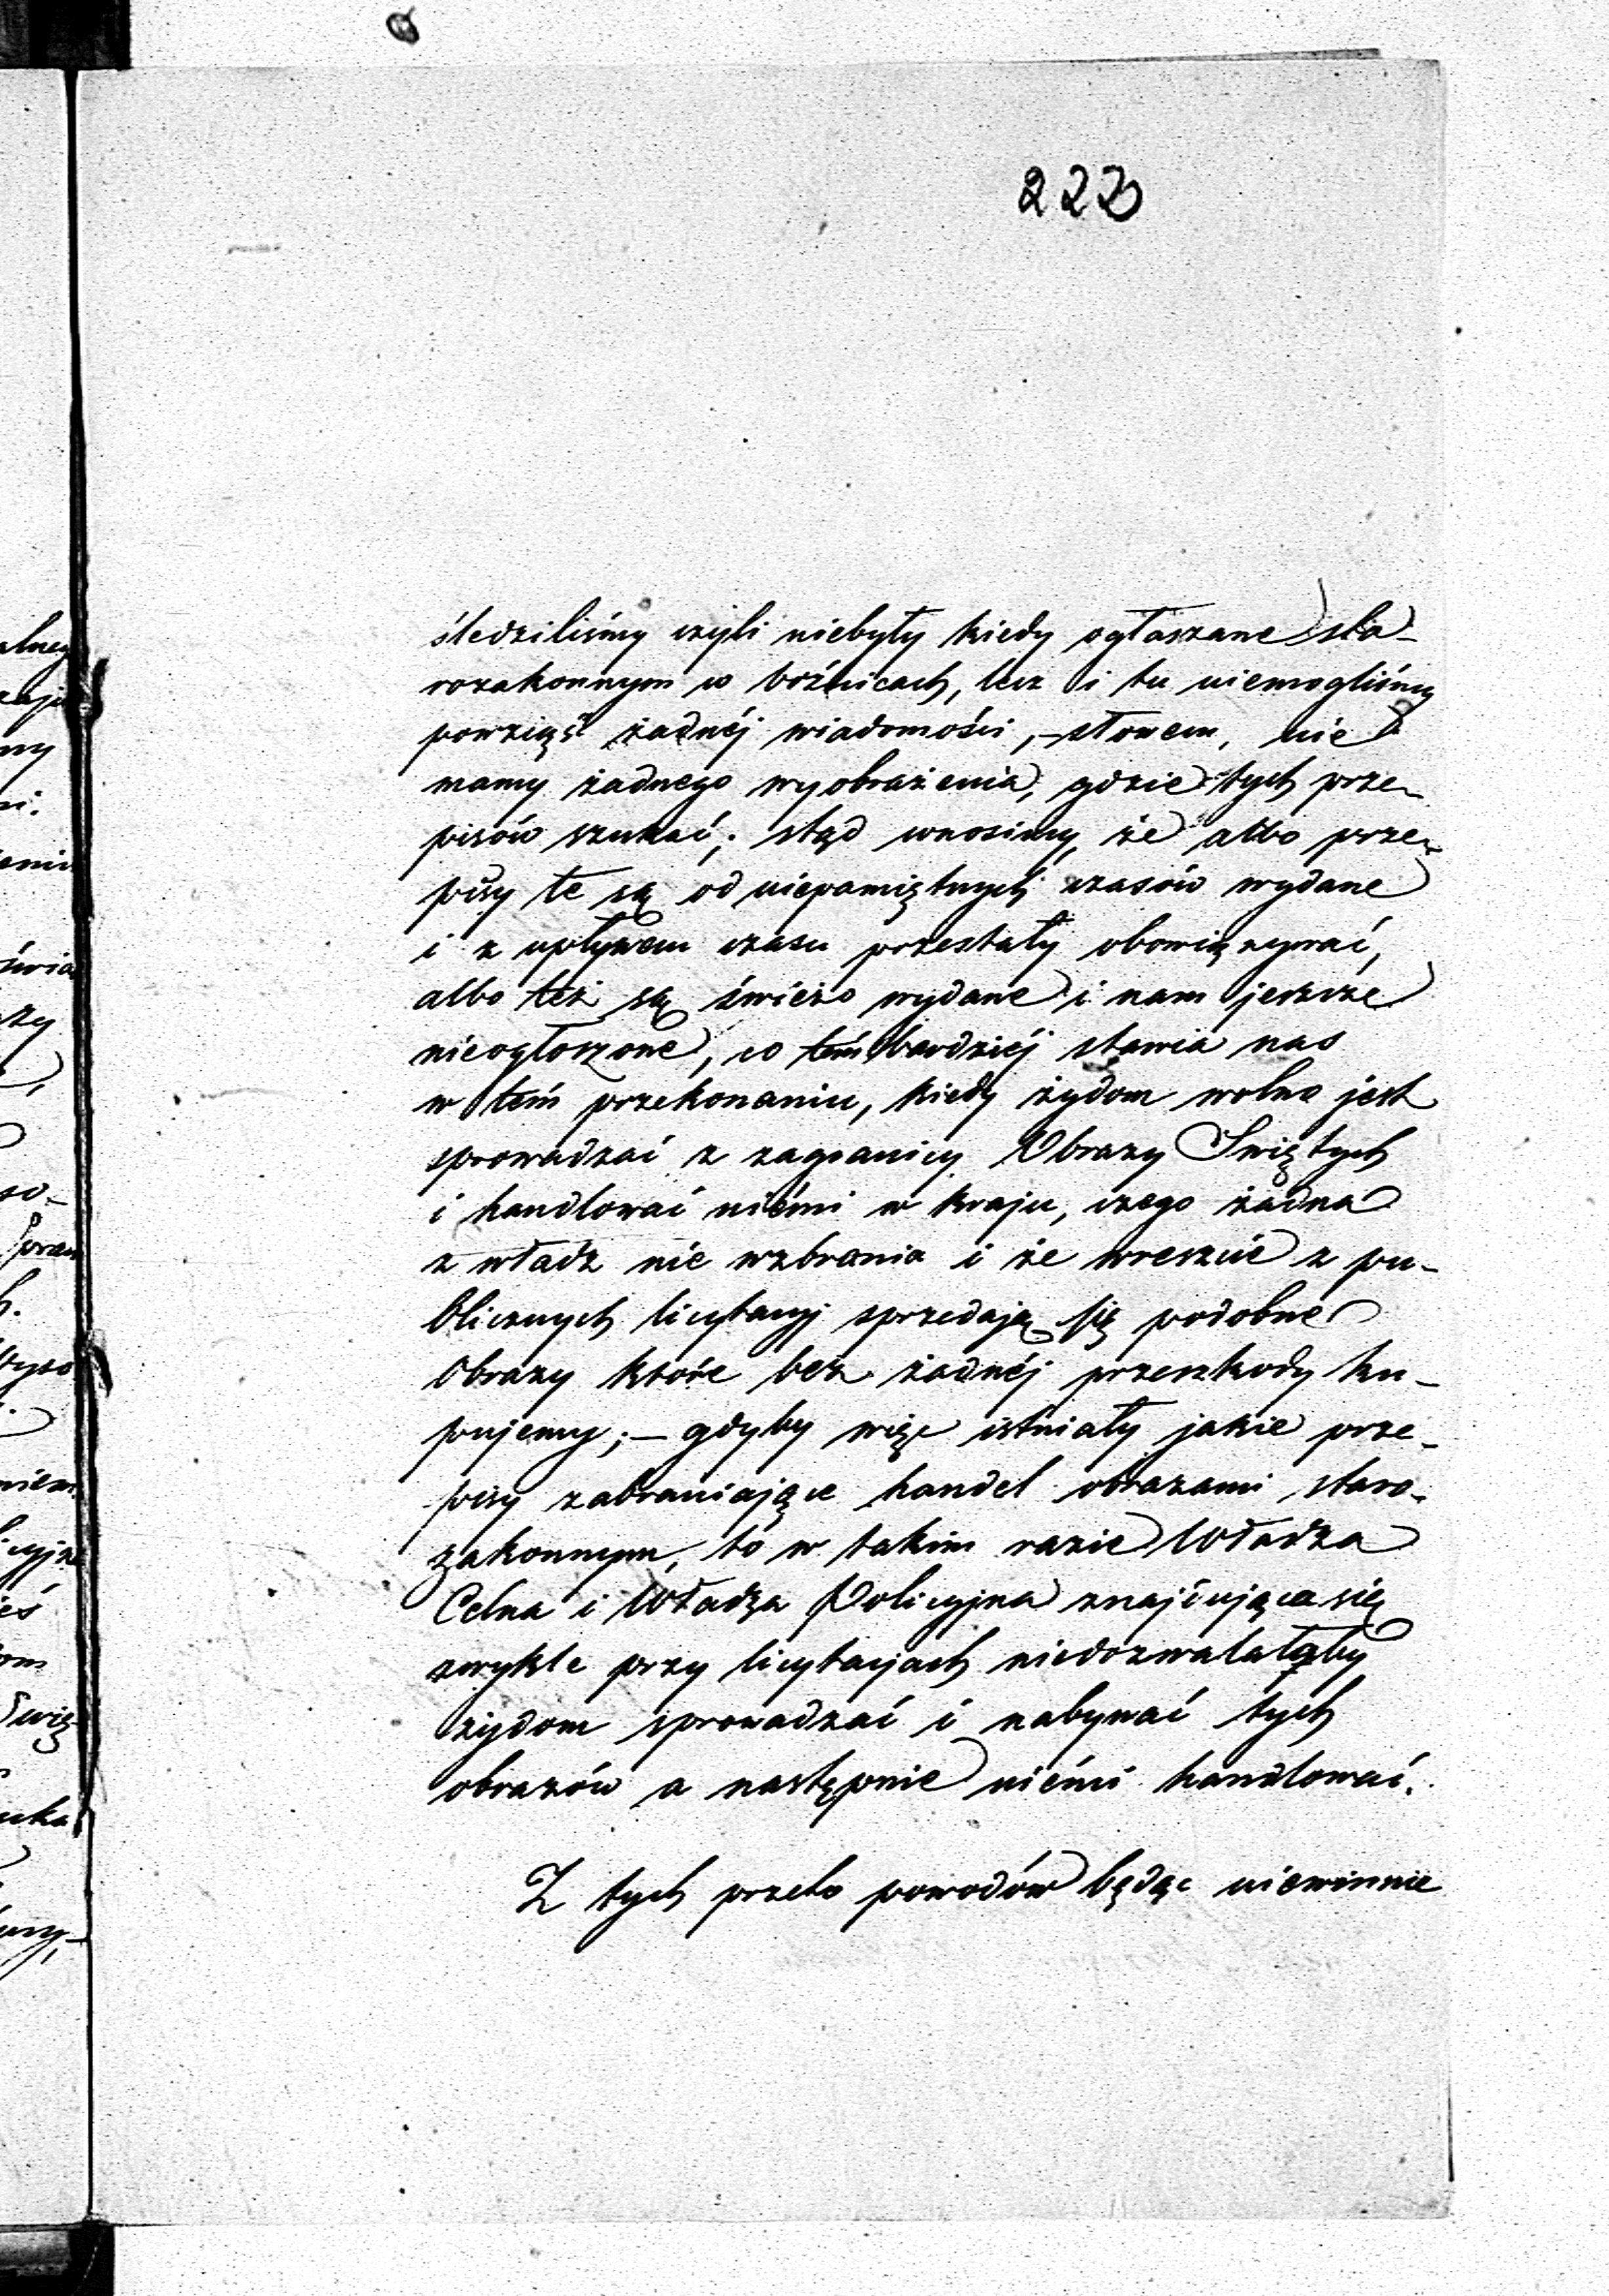 222
śledziliśmy czyli niebyły kiedy ogłaszane sta-
rozakonnym w bóźnicach, lecz i tu niemogliśmy
powziąść żadnéj wiadomości, – słowem, nie
mamy żadnego wyobrażenia, gdzie tych prze-
pisów szukać; stąd wnosimy, że albo prze-
pisy te są od niepamiętnych czasów wydane
i z upływem czasu przestały obowiązywać,
albo też są świeżo wydane i nam jeszcze
nieogłoszone, co tém bardziéj stawia nas
w tém przekonaniu, kiedy żydom wolno jest
sprowadzać z zagranicy Obrazy Swiętych
i handlować niémi w kraju, czego żadna
z władz nie wzbrania i że wreszcie z pu-
blicznych licytacyj sprzedają się podobne
Obrazy które bez żadnéj przeszkody ku-
pujemy; – gdyby więc istniały jakie prze-
pisy zabraniające handel obrazami staro-
zakonnym, to w takim razie Władza
Celna i Władza Policyjna znajdująca się
zwykle przy licytacjach niedozwalałaby
żydom sprowadzać i nabywać tych
obrazów a następnie niémi handlować.
Z tych przeto powodów będąc niewinnie